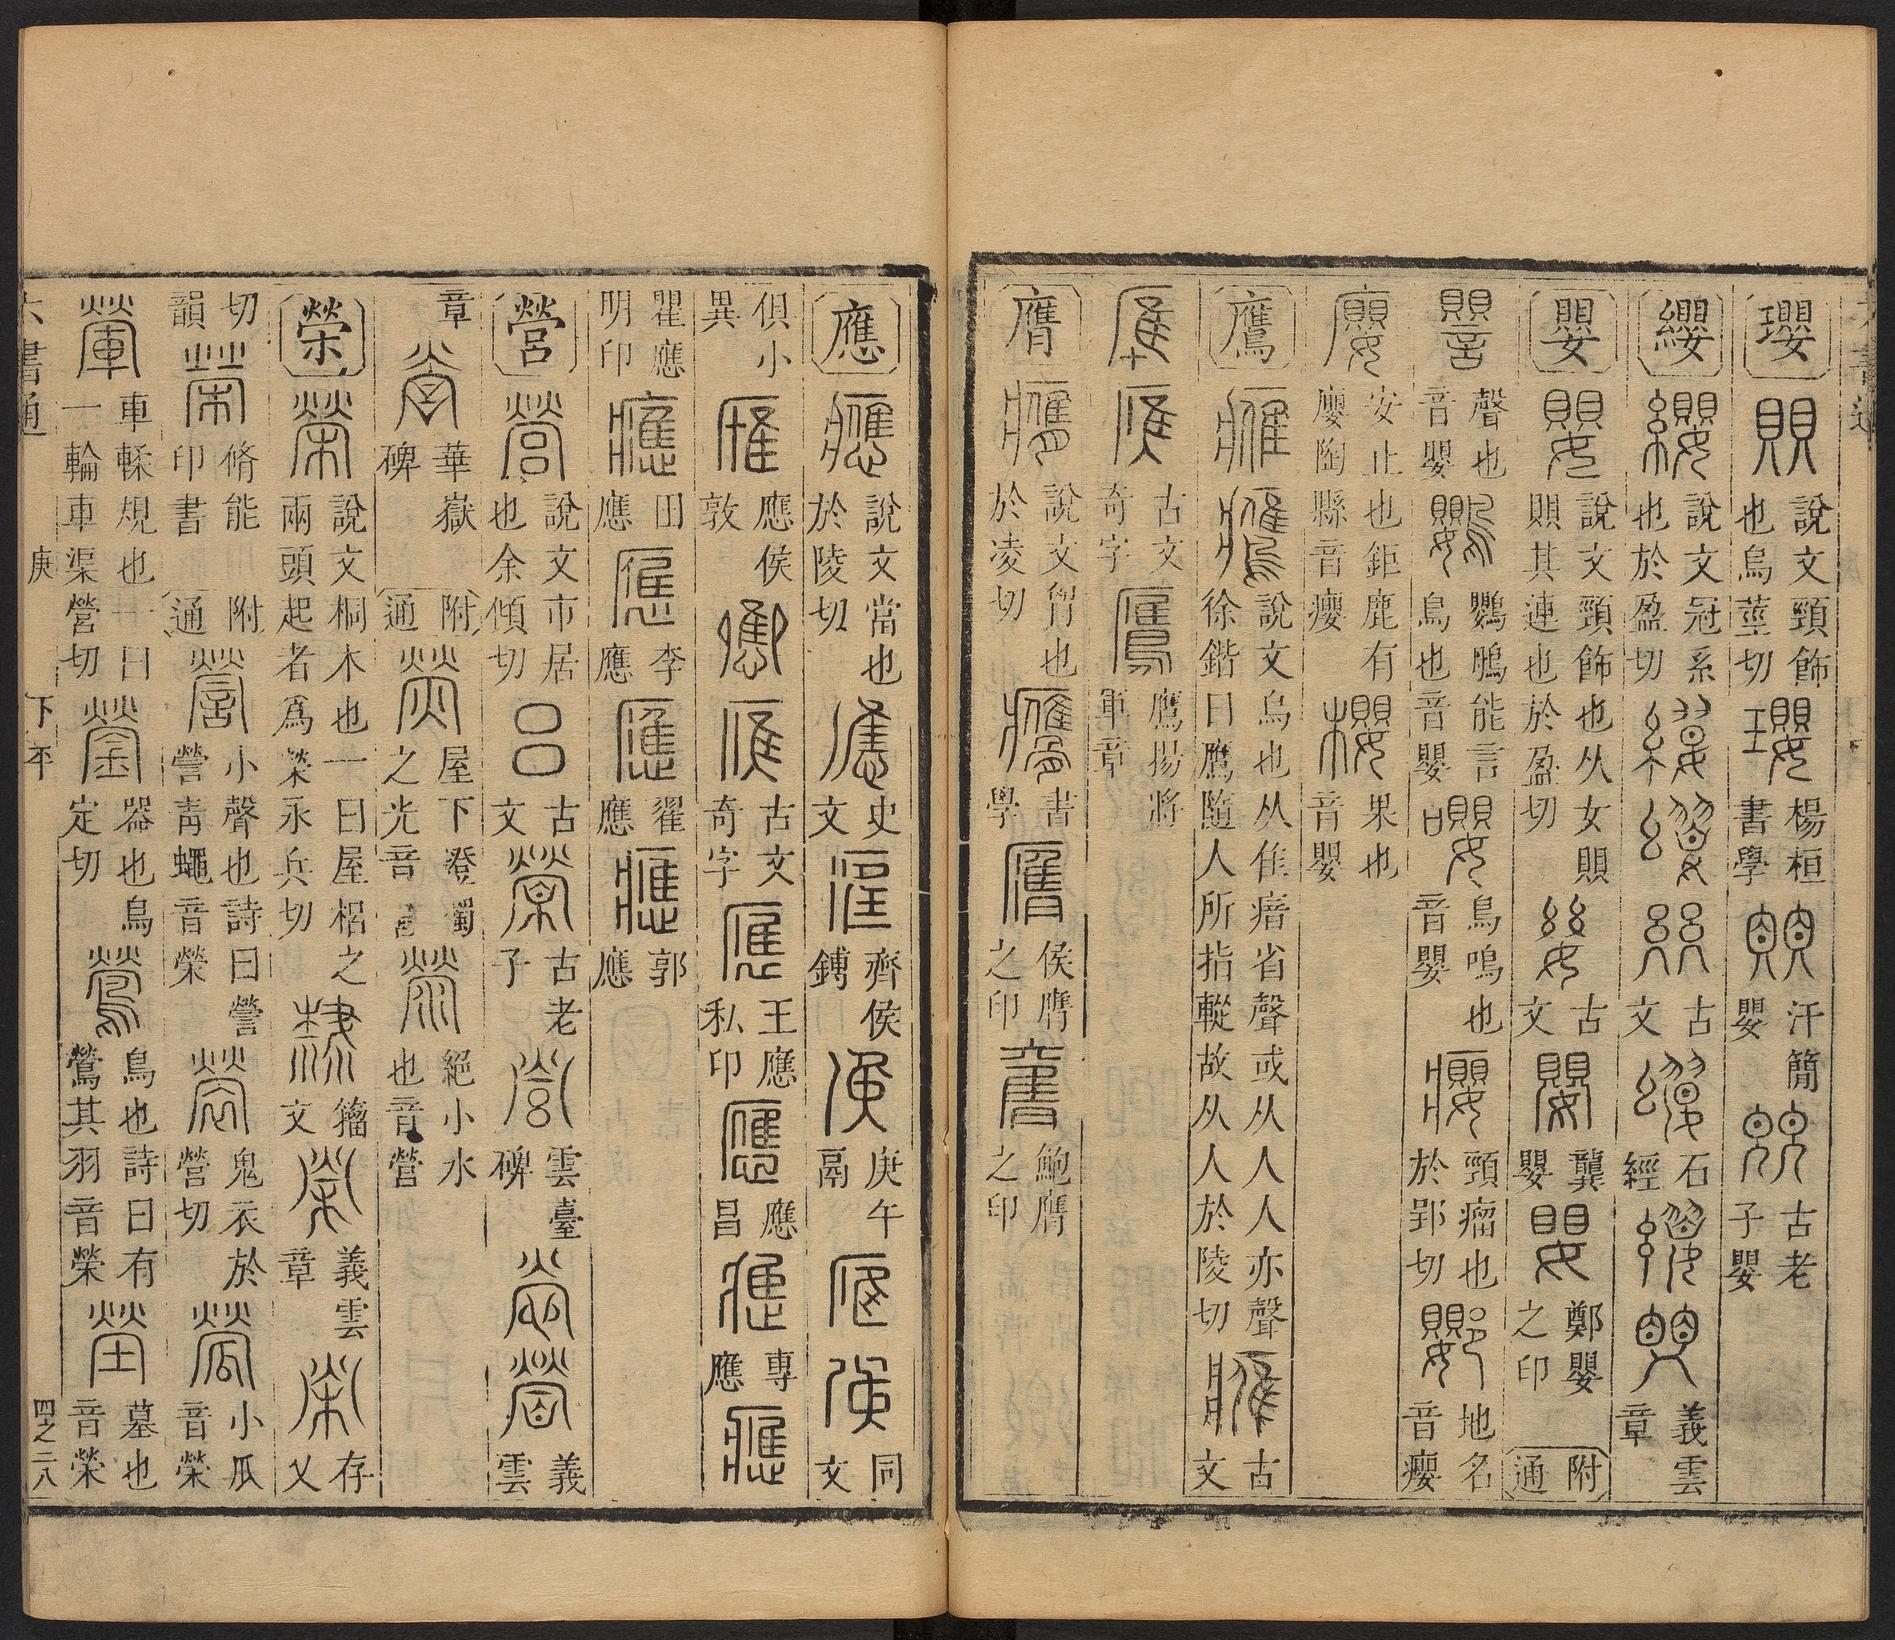 瓔 賏 說文頸飾也烏莖切 瓔 楊桓書學 汗簡嬰 古老子嬰
纓 纓 說文冠系也於盈切 古文 石經 義雲章
嬰 嬰 說文頸飾也从女賏賏其連也於盈切 古文 龔嬰 鄭嬰之印 附通
譻 聲也音嬰 鸚 鸚鵡能言鳥也音嬰 嚶 鳥鳴也音嬰 癭 頸瘤也於郢切 䣐 地名音癭
廮 安止也鉅鹿有廮陶縣音癭 櫻 果也音嬰
鷹 說文鳥也从隹瘖省聲或从人人亦聲徐鍇曰鷹隨人所指䡮故从人於陵切 古文
古文奇字 鷹揚將軍章
膺 說文胷也於凌切 書學 侯膺之印 鮑膺之印
應 說文當也於陵切 史文 齊侯鎛 庚午鬲 同文
俱小異 應侯敦 古文奇字 王應私印 應昌 專應
瞿應明印 田應 李應 翟應 郭應
營 說文市居也余傾切 古文 古老子 雲臺碑 義雲
章 華嶽碑 附通 熒 屋下燈燭之光音 絕小水也音營
榮 說文桐木也一曰屋梠之兩頭起者爲榮永兵切 籀文 義雲章 存乂
切韻 脩能印書 附通 營 小聲也詩曰營營青蠅音榮 褮 鬼衣於營切 小瓜音榮
車輮規也一曰一輪車渠營切 鎣 器也烏定切 鶯 鳥也詩曰有鶯其羽音榮 塋 墓也音榮
六書通 庚 下平 四之二八